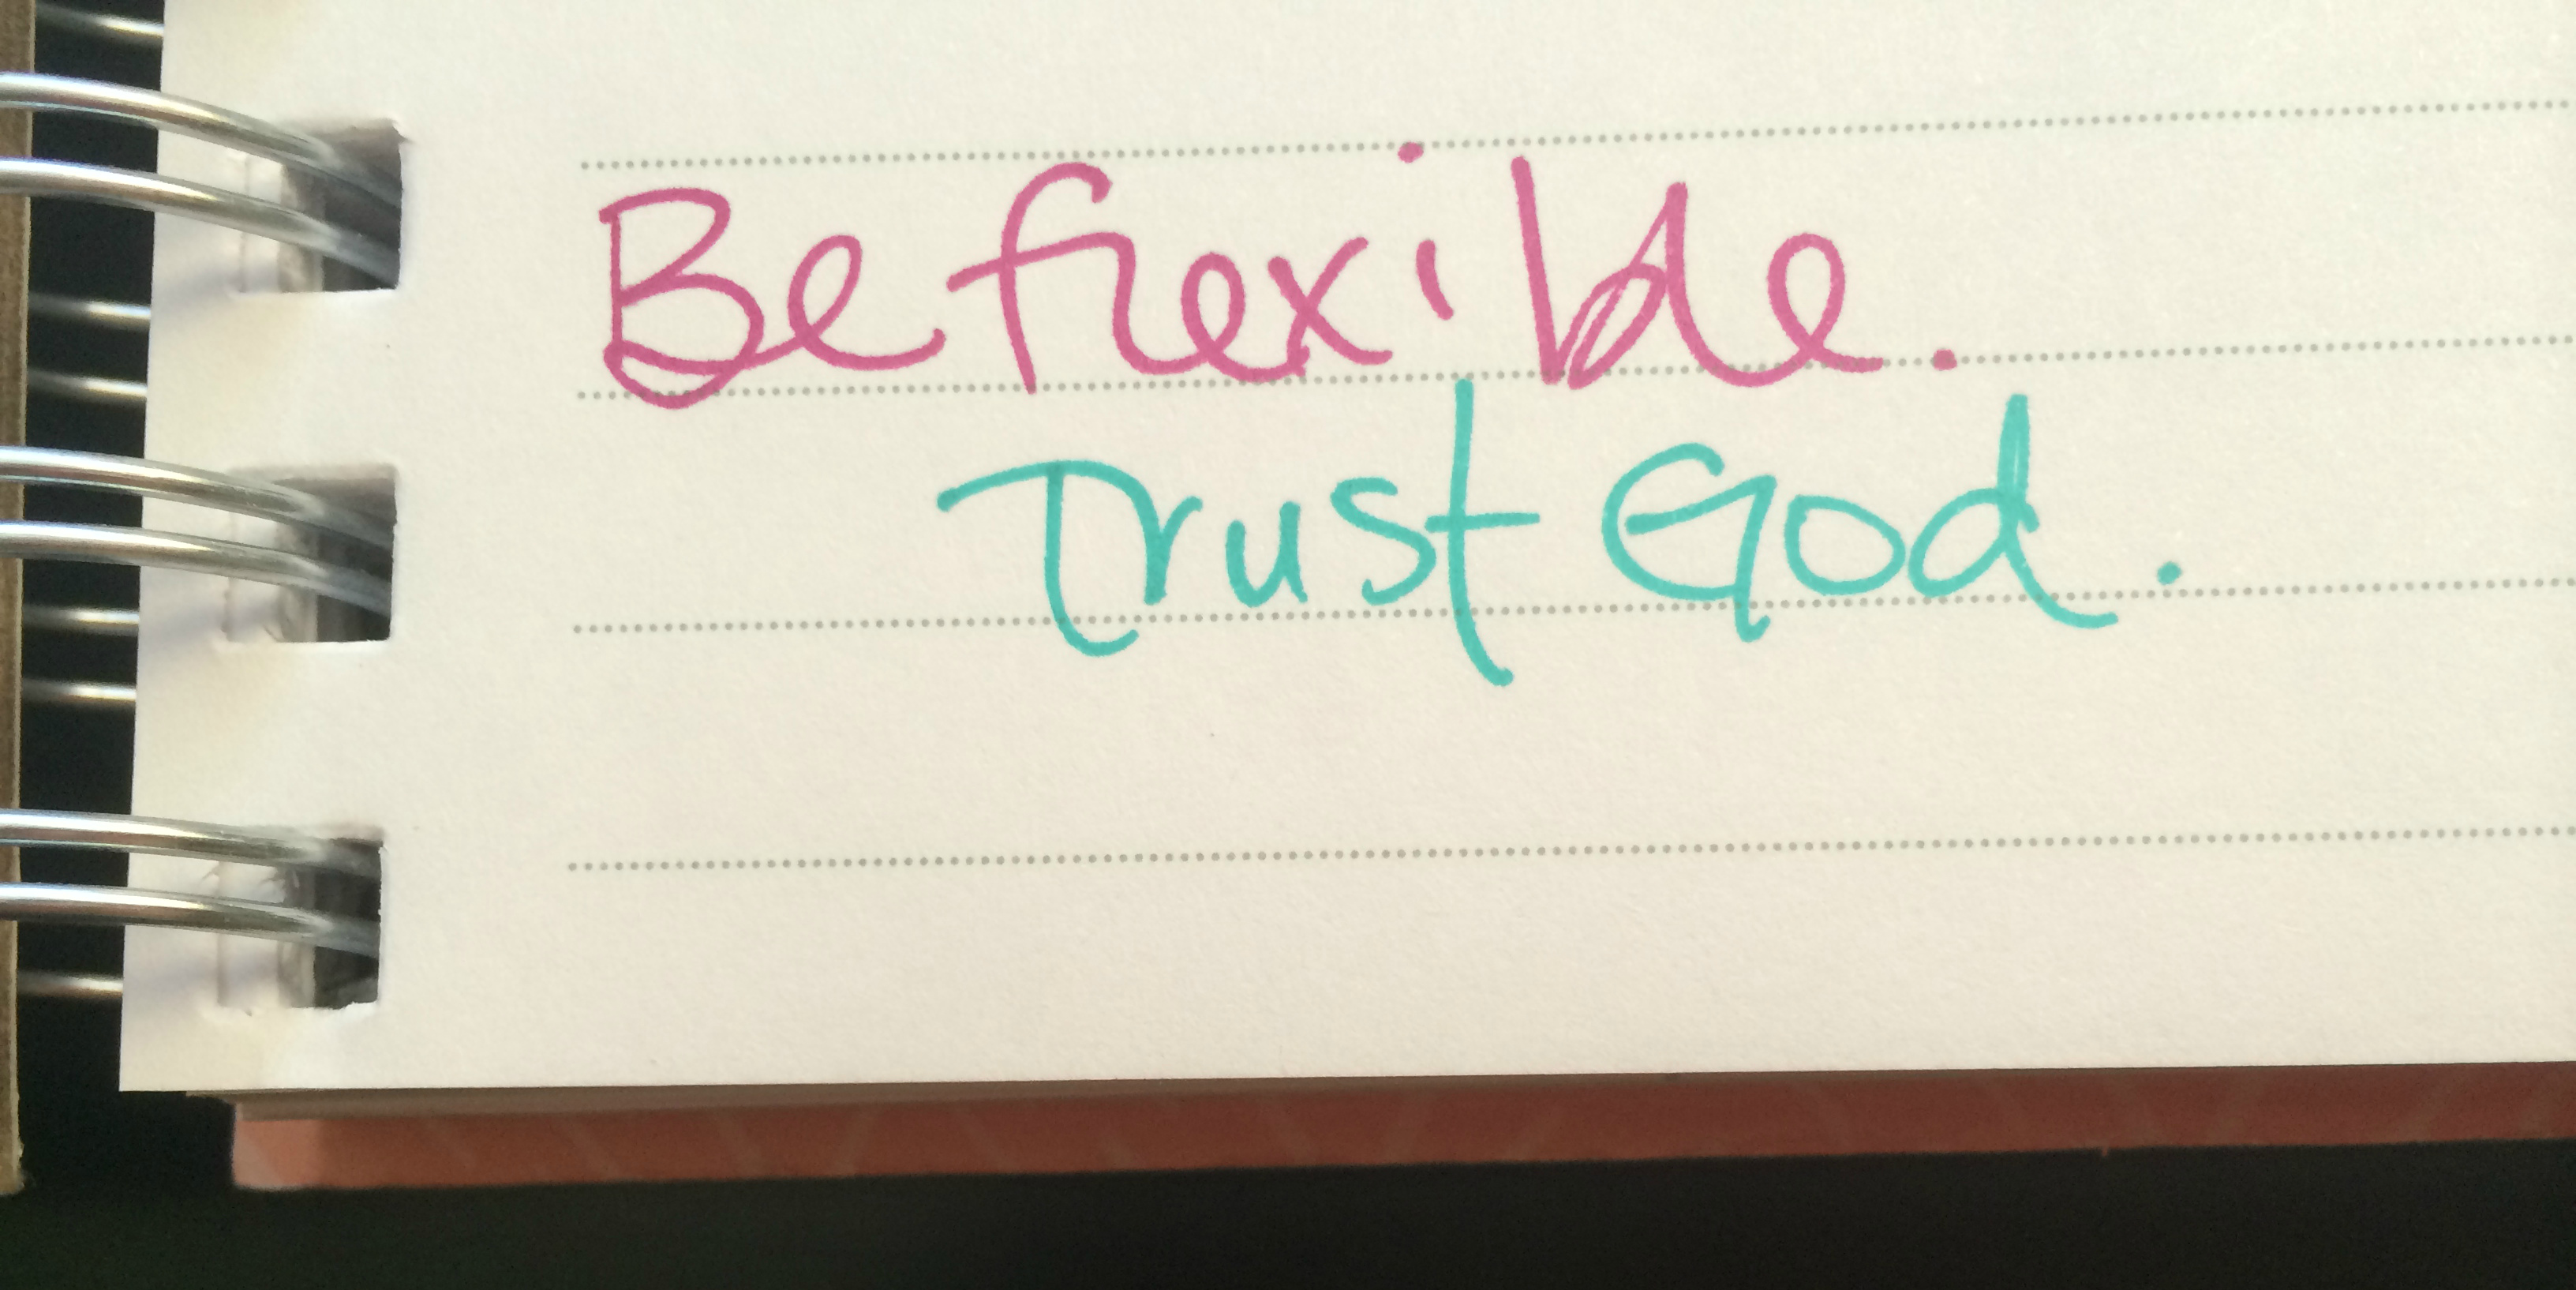 Be flexible.
Trust God.